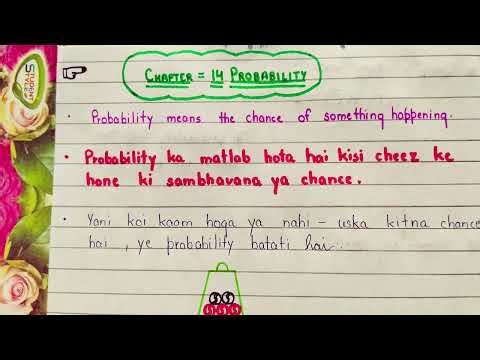 STUDENT STYLE
CHAPTER = 14 PROBABILITY
• Probability means the chance of something happening.
• Probability ka matlab hota hai kisi cheez ke
hone ki sambhavana ya chance.
• Yani koi kaam hoga ya nahi – uska kitna chance
hai , ye probability batati hai.